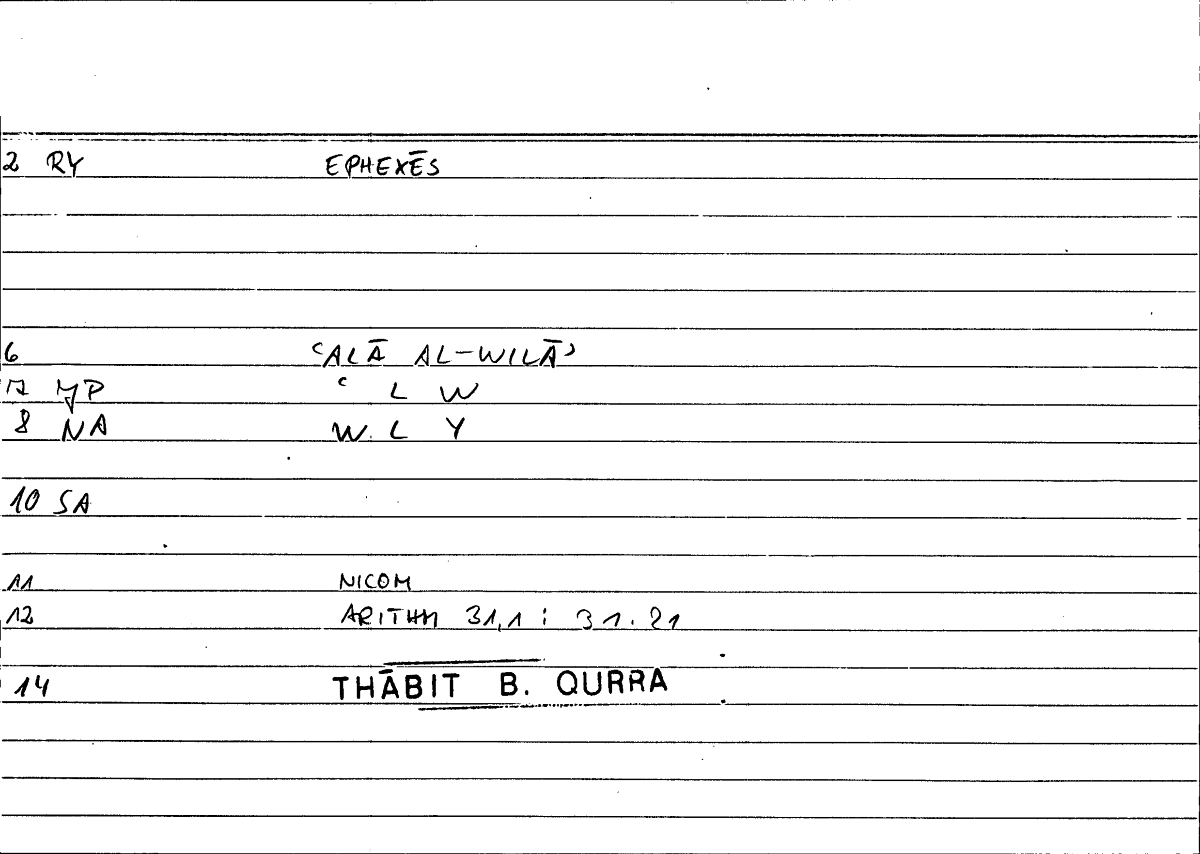 2 RY EPHEXĒS
6 ʿALĀ AL-WILĀʾ
7 MP ʿ L W
8 NA W. L Y
10 SA
11 NICOM
12 ARITHM 31,1 ; 31.21
14 THĀBIT B. QURRA